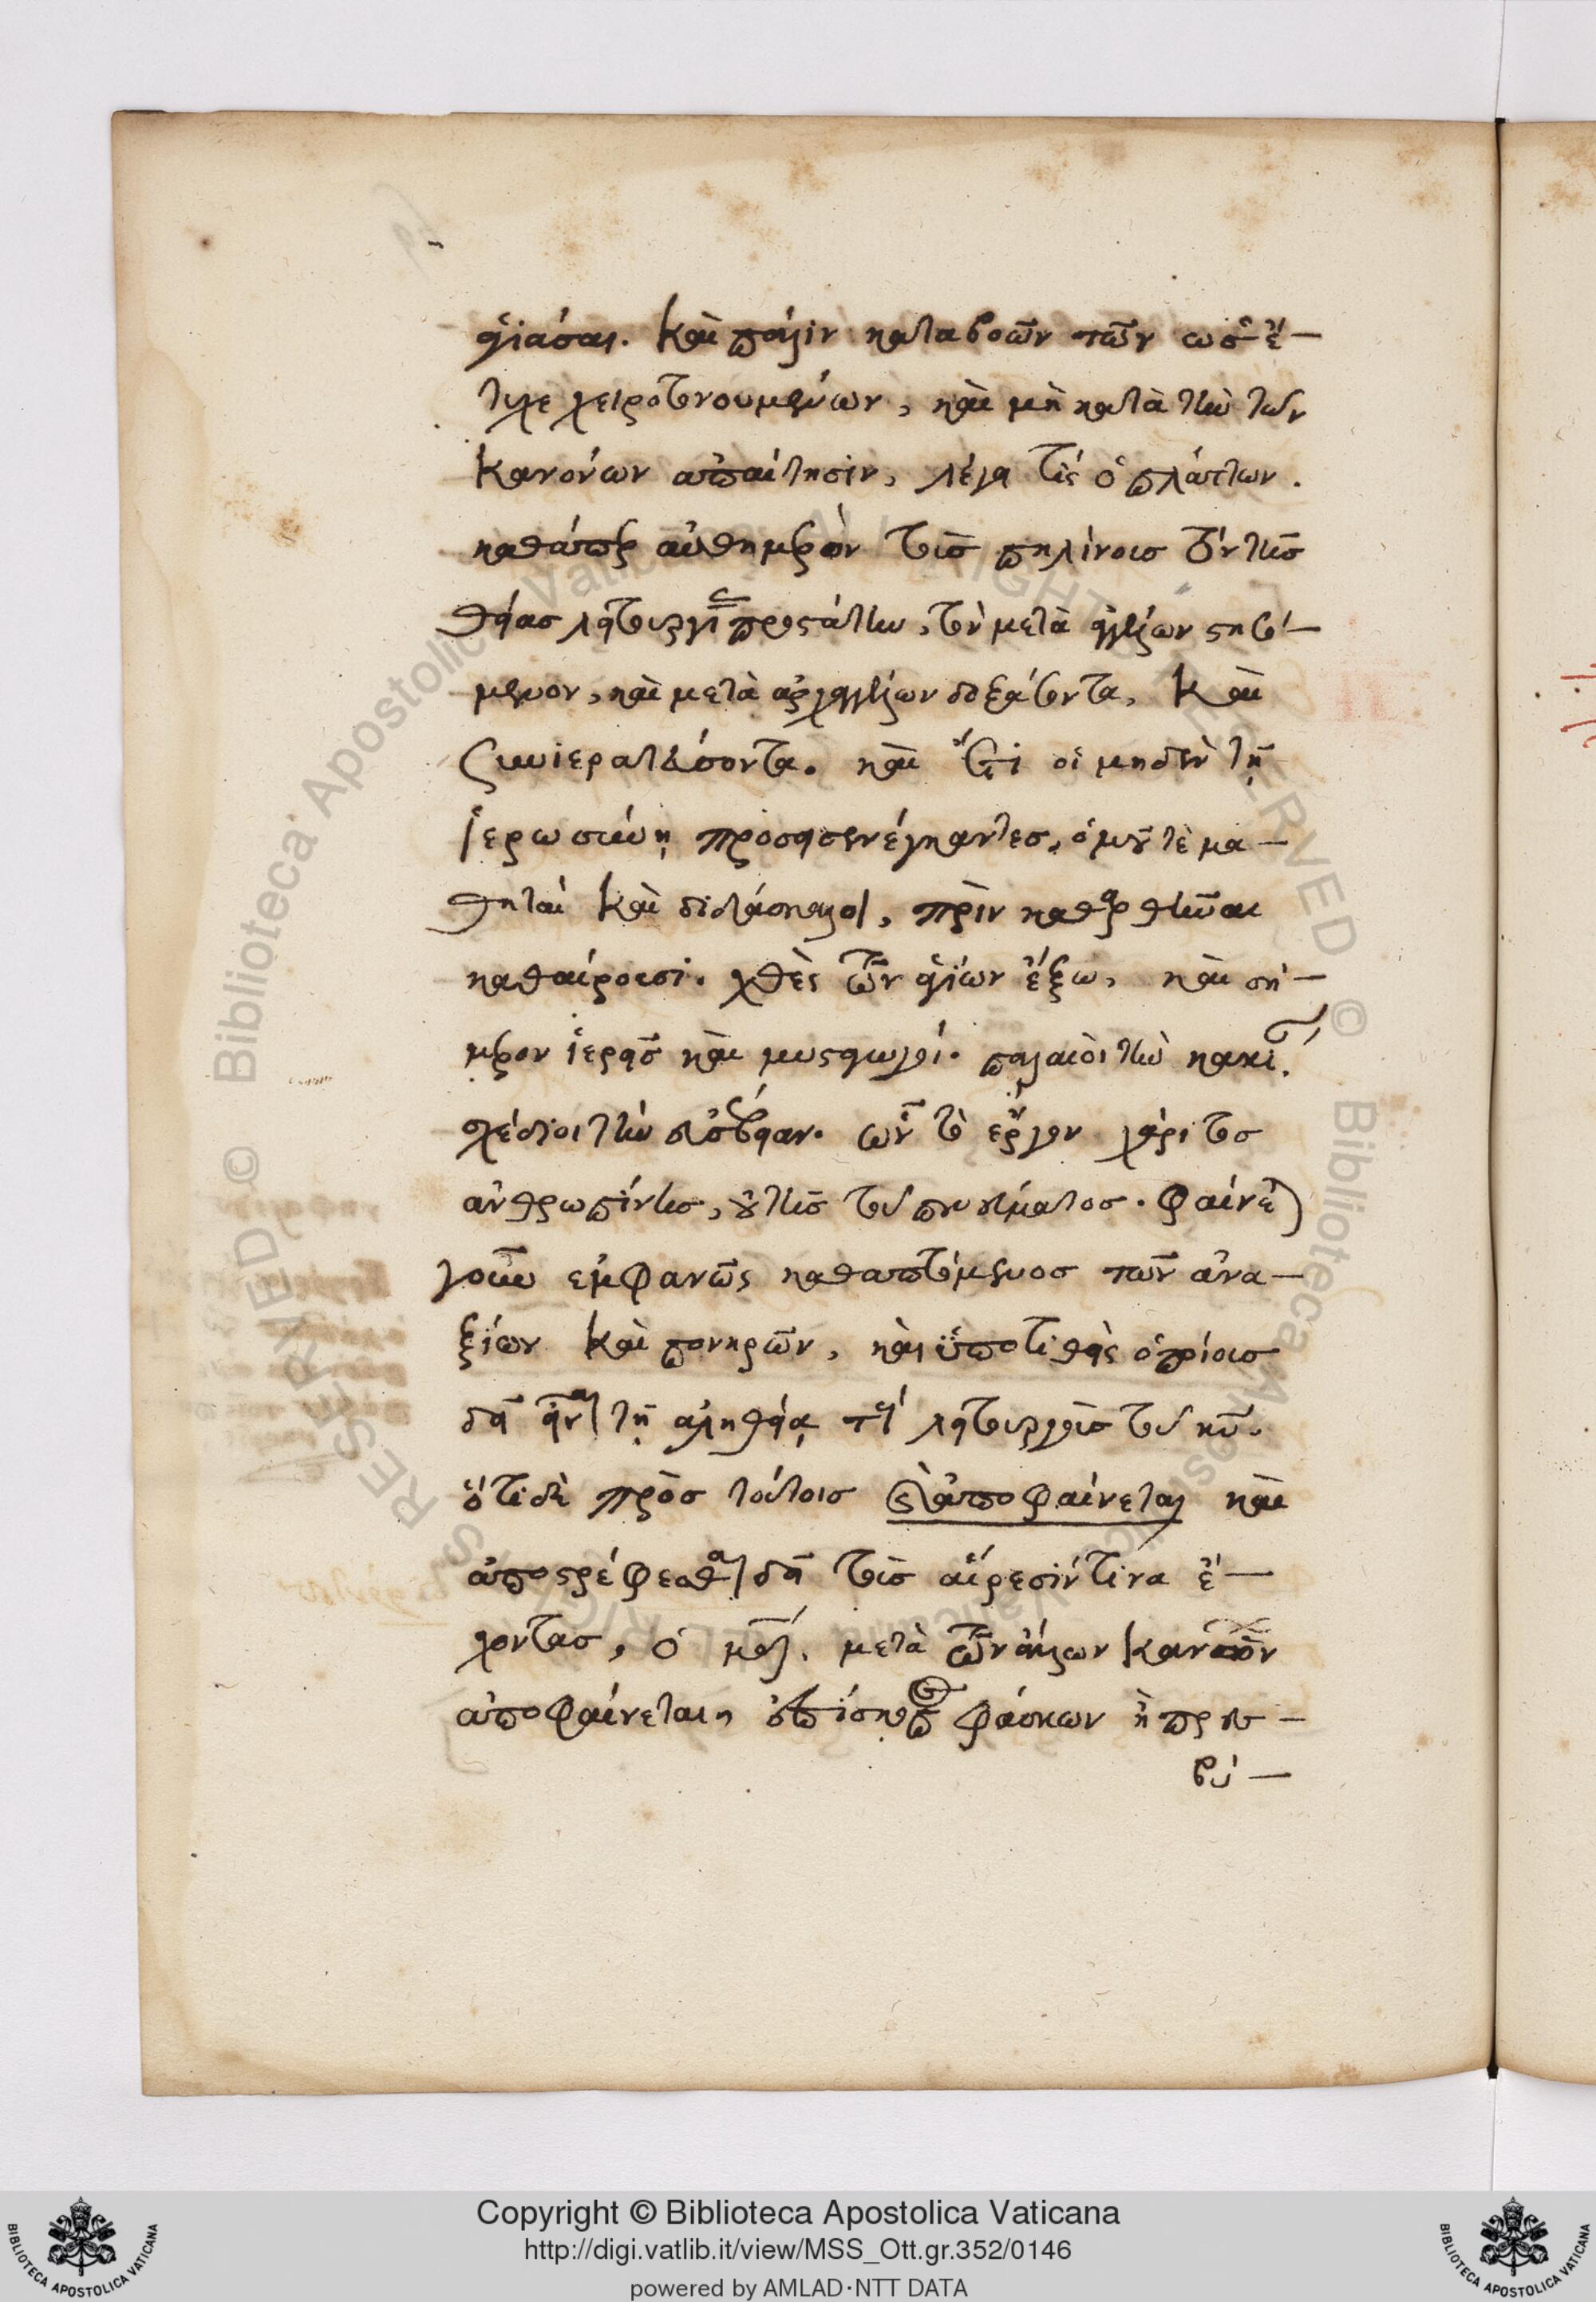 ἁγιάσαι. Καὶ πάλιν καταβοῶν τῶν ὡς ἔ-
τυχε χειροτονουμένων, καὶ μὴ κατὰ τὴν τῶν
κανόνων ἀπαίτησιν, λέγει τίς ὁ πλάττων.
καθάπερ αὐθημερὸν τοῖς πηλίνοις τὸν τῆς
θείας λειτουργίας προστάτην, τὸν μετὰ ἀγγέλων στησό-
μενον, καὶ μετὰ ἀρχαγγέλων δοξάσοντα, Καὶ
συνιερατεύσοντα. καὶ ἔτι οἱ μηδὲν τῇ
ἱερωσύνῃ προσεισενέγκαντες, ὁμοῦ τὲ μα-
θηταὶ Καὶ διδάσκαλοι, πρὶν καθαρθῆναι
καθαίρουσι. χθὲς τῶν ἁγίων ἔξω, καὶ σή-
μερον ἱερεῖς καὶ μυσταγωγοί. παλαιοὶ τὴν κακίαν.
σχέδιοι τὴν εὐσέβειαν. ὧν τὸ ἔργον χάριτος
ἀνθρωπίνης, οὐ τῆς τοῦ πνεύματος. φαίνεται
γοῦν ἐμφανῶς καθαπτόμενος τῶν ἀνα-
ξίων Καὶ πονηρῶν, καὶ ὑποτιθεὶς ὁποίους
δεῖ εἶναι τῇ ἀληθείᾳ τοὺς λειτουργοὺς τοῦ κυ.
ὅτι δὲ πρὸς τούτοις ἀποφαίνεται καὶ
ἀποστρέφεσθαι δεῖ τοὺς αἵρεσίν τινα ἔ-
χοντας, ὁ μὲν. μετὰ τῶν ἄλλων κανόνων
ἀποφαίνεται, ἐπίσκοπος φάσκων ἢ πρεσ-
βύ-
Copyright © Biblioteca Apostolica Vaticana
http://digi.vatlib.it/view/MSS_Ott.gr.352/0146
powered by AMLAD·NTT DATA